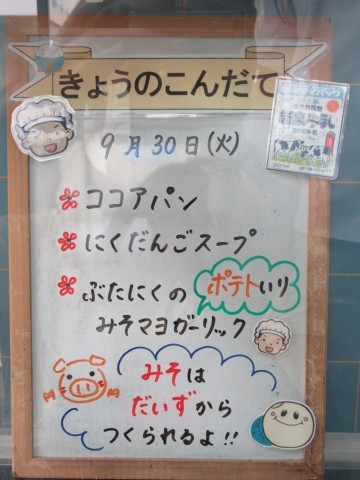 きょうのこんだて
9月30日(火)
ココアパン
にくだんごスープ
ぶたにくの ポテトいり
みそマヨガーリック
みそは
だいずから
つくられるよ!!